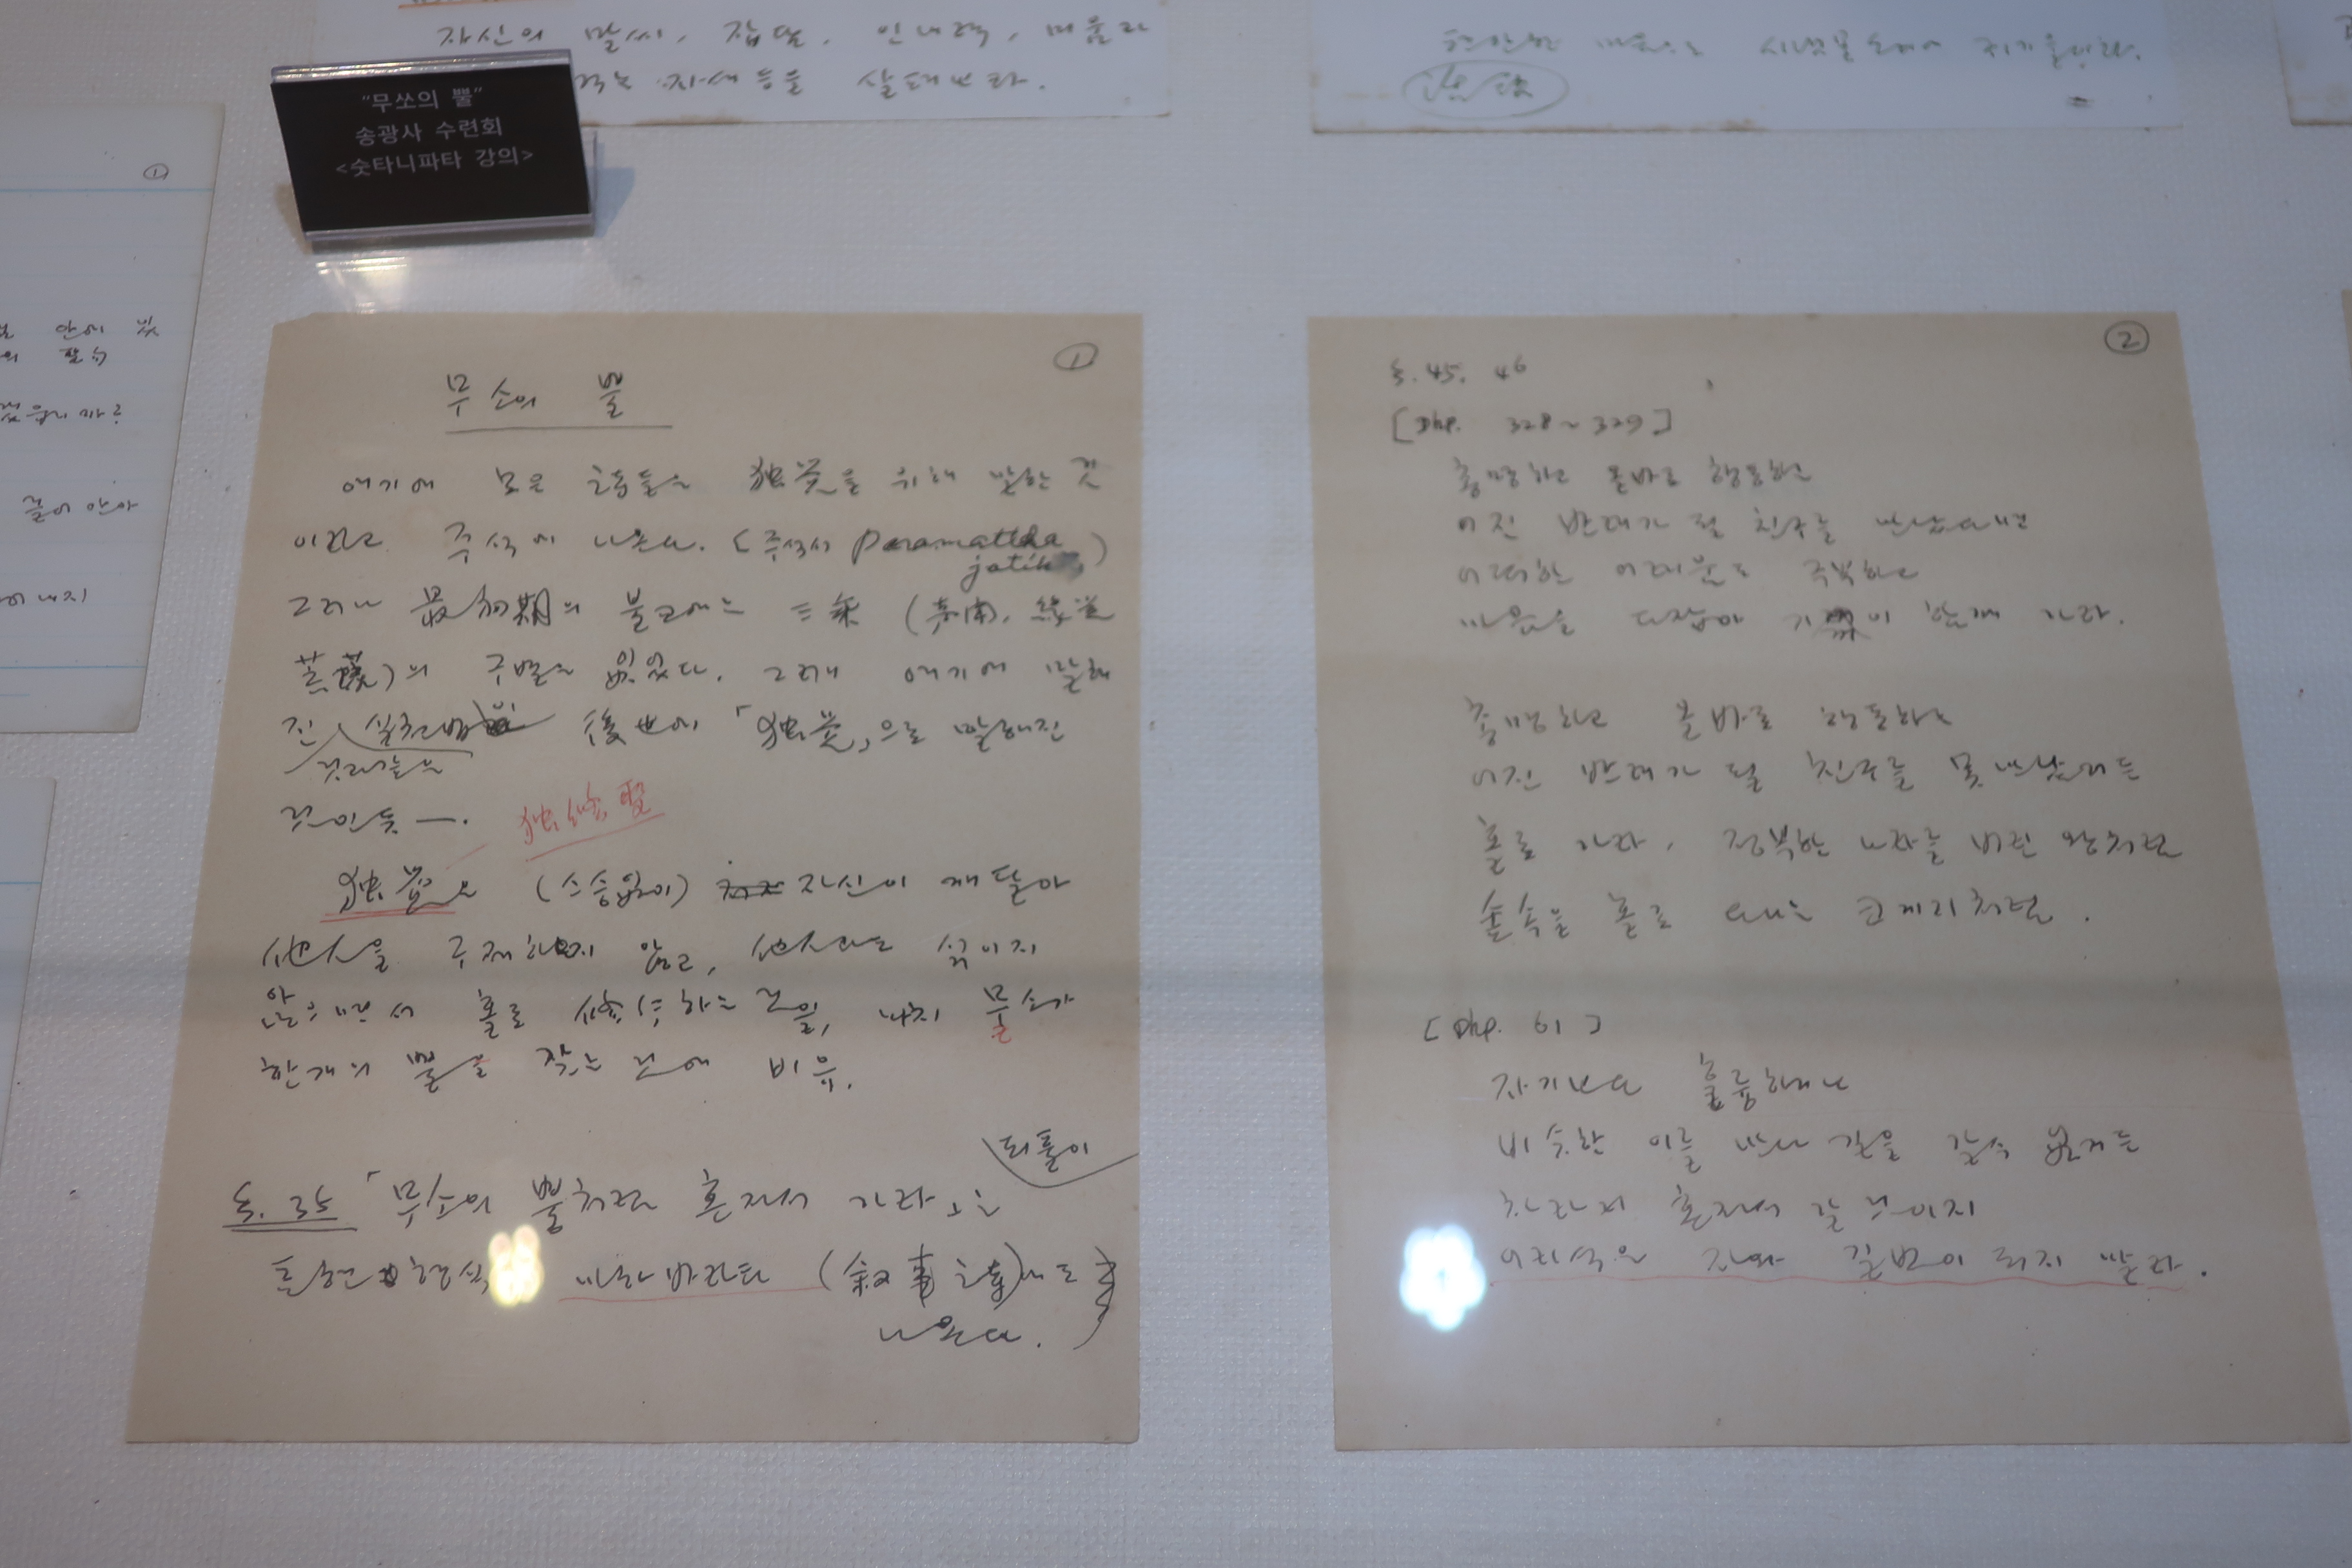 자신의 말씨, 잡담, 인내력, 마음과
자세 등을 살펴보라.
편안한 마음으로 시냇물소리에 귀기울인다.
"무쏘의 뿔"
송광사 수련회
<숫타니파타 강의>
①
안에
들어 앉아
①
무소의 뿔
여기에 모은 詩들은 独覚을 위해 말한 것
이라고 주석에 나온다. (주석서 Paramattha
jotikā)
그러나 最初期의 불교에는 三乘 (声聞, 縁覚
菩薩)의 구별은 없었다. 그래서 여기에 말해
진 後世에 「独覚」으로 말해진
것래들은
것인듯―.
独修聖
独覚은 (스승없이) 자신이 깨달아
他人을 구제하지 않고, 他人과도 섞이지
않으면서 홀로 修行하는 것을, 마치 물소가
한개의 뿔을 갖는 것에 비유.
되풀이
S. 35 「무소의 뿔처럼 혼자서 가라」는
표현형식 마하바라타 (叙事詩)에도
나온다.
②
S. 45. 46
[Dhp. 328~329]
총명하고 올바로 행동하는
어진 반려가 될 친구를 만났다면
어떠한 어려움도 극복하고
마음을 다잡아 기꺼이 함께 가라.
총명하고 올바로 행동하는
어진 반려가 될 친구를 못 만났거든
홀로 가라, 정복한 나라를 버린 왕처럼
숲속을 홀로 다니는 코끼리처럼.
[Dhp. 61]
자기보다 훌륭하거나
비슷한 이를 만나 길을 갈 수 없거든
차라리 혼자서 갈 것이지
어리석은 자와 길벗이 되지 말라.